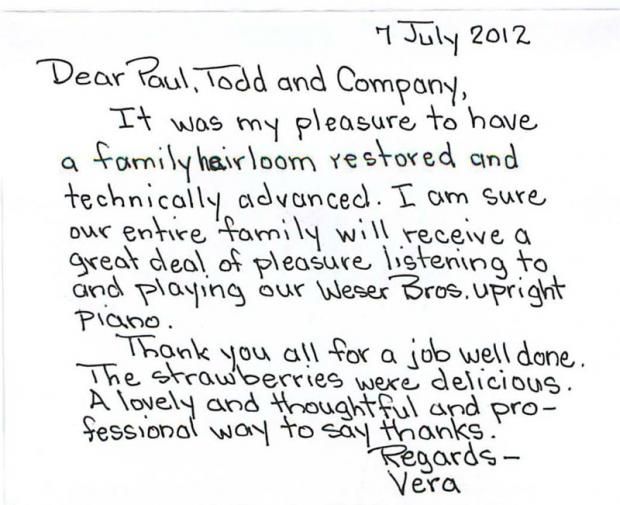 7 July 2012
Dear Paul, Todd and Company,
It was my pleasure to have
a family heirloom restored and
technically advanced. I am sure
our entire family will receive a
great deal of pleasure listening to
and playing our Weser Bros. upright
piano.
Thank you all for a job well done.
The strawberries were delicious.
A lovely and thoughtful and pro-
fessional way to say thanks.
Regards-
Vera